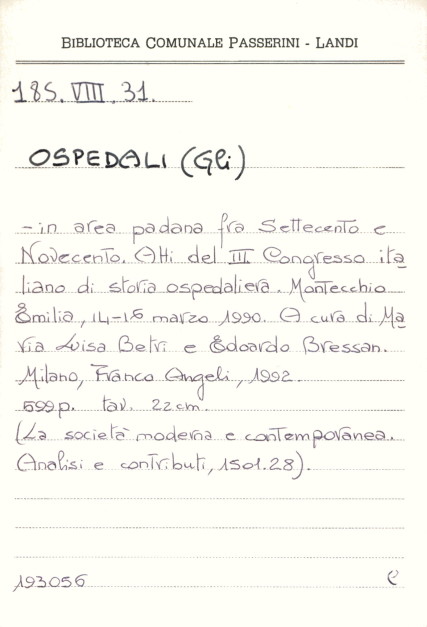 BIBLIOTECA COMUNALE PASSERINI - LANDI
185. VIII. 31.
OSPEDALI (Gli)
- in area padana fra Settecento e
Novecento. Atti del III Congresso ita
liano di storia ospedaliera. Montecchio
Emilia, 14-16 marzo 1990. A cura di Ma
ria Luisa Betri e Edoardo Bressan.
Milano, Franco Angeli, 1992.
599 p. tav. 22 cm.
(La società moderna e contemporanea.
Analisi e contributi, 1501.28).
193056 C